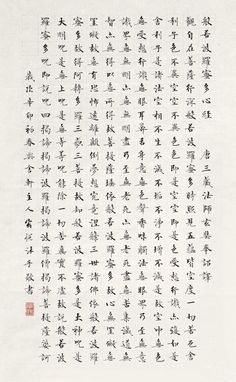 般若波羅蜜多心經 唐三藏法師玄奘奉詔譯
觀自在菩薩行深般若波羅蜜多時照見五蘊皆空度一切苦厄舍
利子色不異空空不異色色即是空空即是色受想行識亦復如是
舍利子是諸法空相不生不滅不垢不淨不增不減是故空中無色
無受想行識無眼耳鼻舌身意無色聲香味觸法無眼界乃至無意
識界無無明亦無無明盡乃至無老死亦無老死盡無苦集滅道無
智亦無得以無所得故菩提薩埵依般若波羅蜜多故心無罣礙無
罣礙故無有恐怖遠離顛倒夢想究竟涅槃三世諸佛依般若波羅
蜜多故得阿耨多羅三藐三菩提故知般若波羅蜜多是大神咒是
大明咒是無上咒是無等等咒能除一切苦真實不虛故說般若波
羅蜜多咒即說咒曰揭諦揭諦波羅揭諦波羅僧揭諦菩提薩婆訶
歲次辛卯初春 舍軒主人 敬書